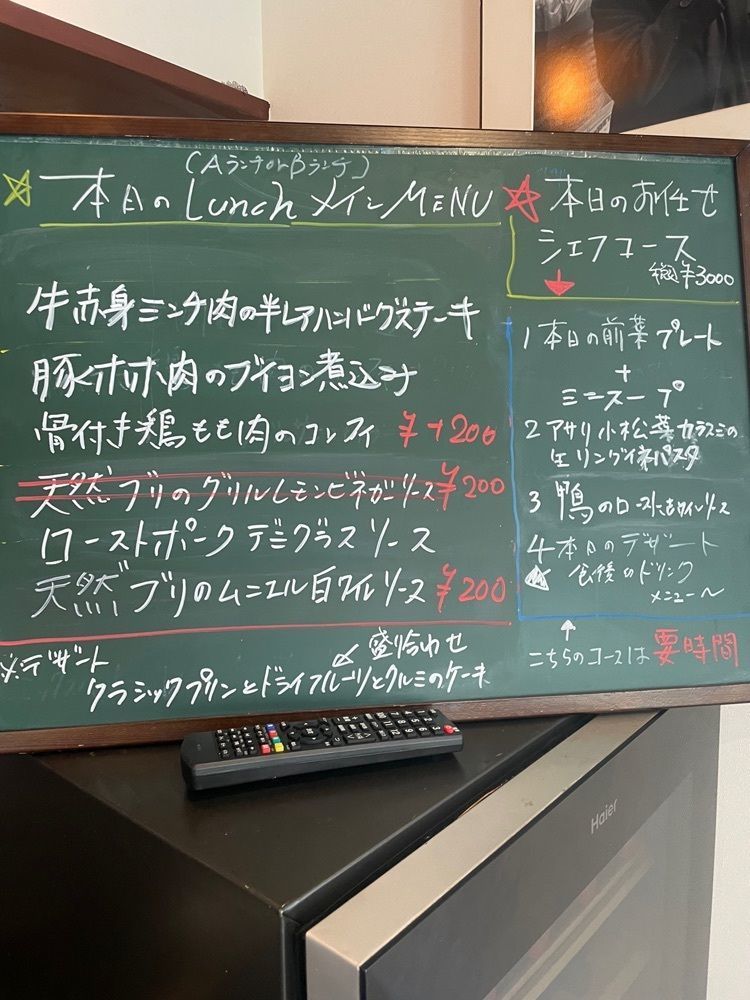 (Aランチ or Bランチ)
本日のLunch メインMENU
牛赤身ミンチ肉の半レアハンバーグステーキ
豚ホホ肉のブイヨン煮込み
骨付き鶏もも肉のコンフィ ¥+200
天然ブリのグリルレモンビネガーソース ¥200
ローストポークデミグラスソース
天然ブリのムニエル白ワインソース ¥200
※デザート
盛り合わせ
クラシックプリンとドライフルーツとクルミのケーキ
本日のお任せ
シェフコース
¥3000
1 本日の前菜プレート
+
ミニスープ
2 アサリ小松菜カラスミの
生リングイネパスタ
3 鴨のロースト赤ワインソース
4 本日のデザート
食後のドリンク
メニュー〜
こちらのコースは要時間
Haier